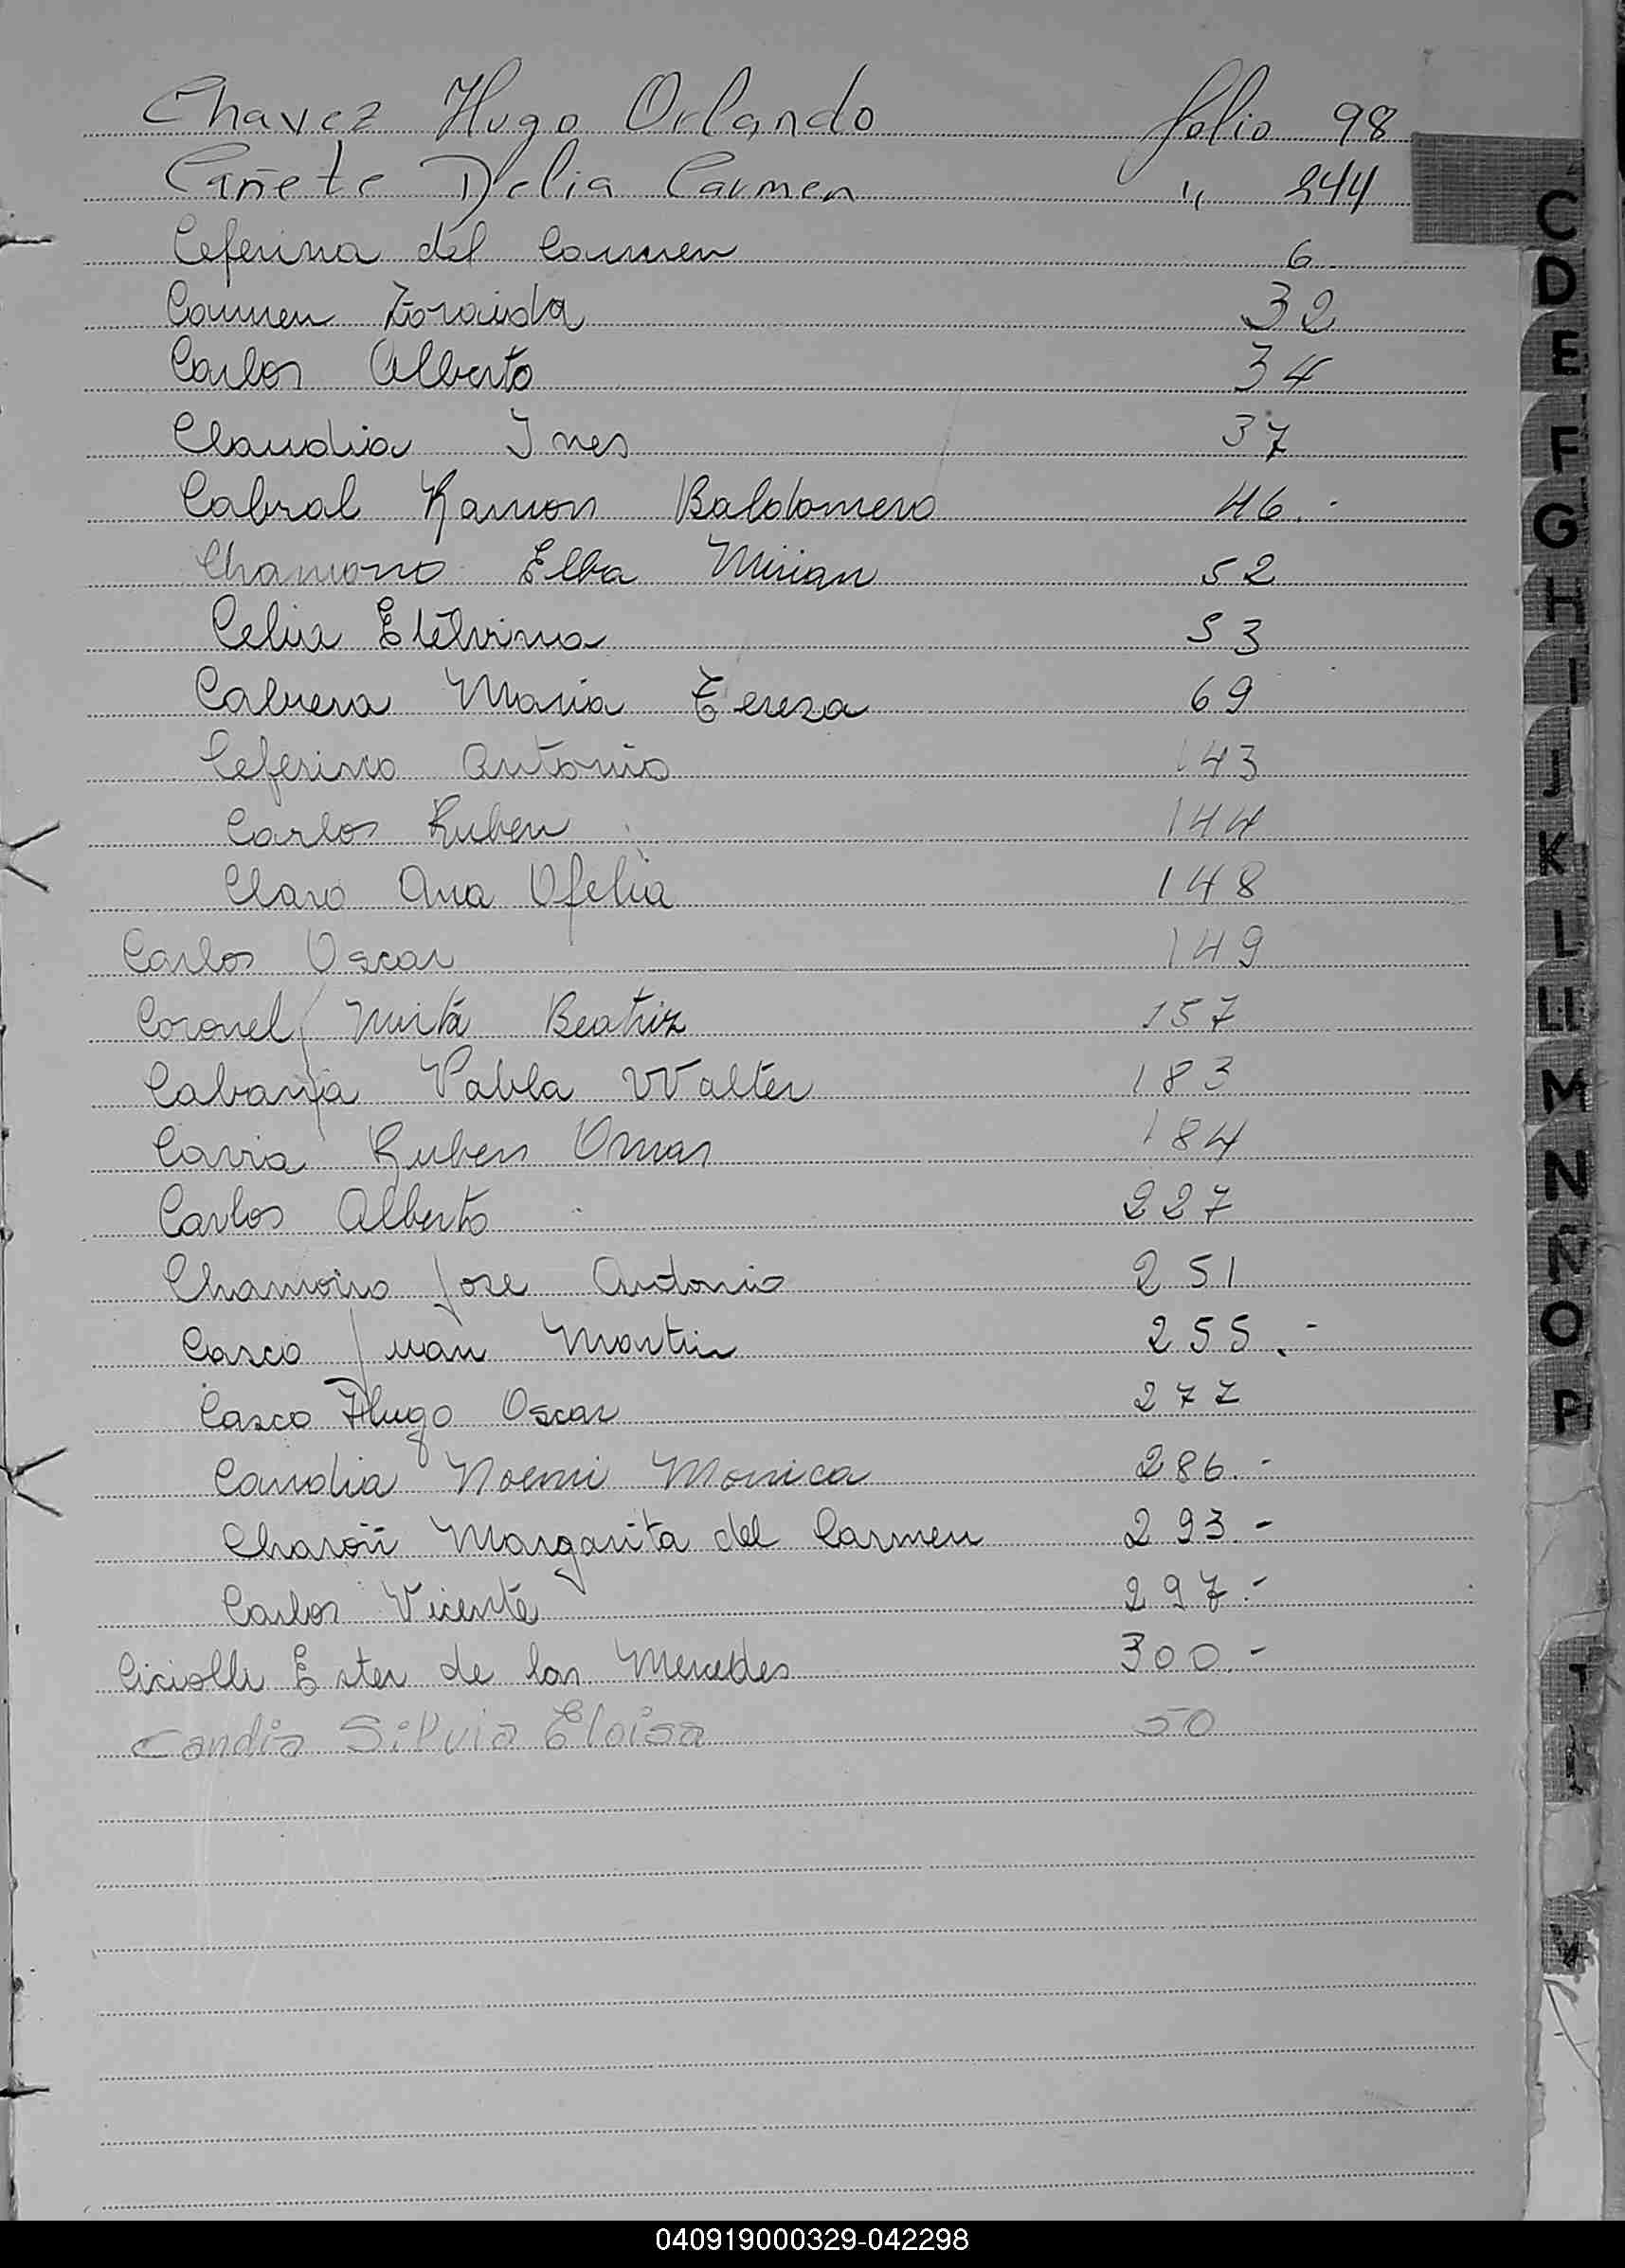 Chavez Hugo Orlando folio 98
Cañete Delia Carmen " 244
Ceferina del Carmen 6
Carmen Zoraida 32
Carlos Alberto 34
Claudia Ines 37
Cabral Ramon Baldomero 46.-
Chamorro Elba Mirian 52
Celia Etelvina 53
Cabrera Maria Tereza 69
Ceferino Antonio 143
Carlos Ruben 144
Claro Ana Ofelia 148
Carlos Oscar 149
Coronel Mirta Beatriz 157
Cabaña Pabla Walter 183
Cavia Ruben Omar 184
Carlos Alberto 227
Chamorro Jose Antonio 251
Casco Juan Martin 255.-
Casco Hugo Oscar 277
Candia Noemi Monica 286.-
Margarita del Carmen 293.-
Carlos Vicente 297.-
Ciciolli Ester de las Mercedes 300.-
Candia Silvia Eloisa 50
C
D
E
F
G
H
I
J
K
L
LL
M
N
Ñ
O
P
T
V
040919000329-042298